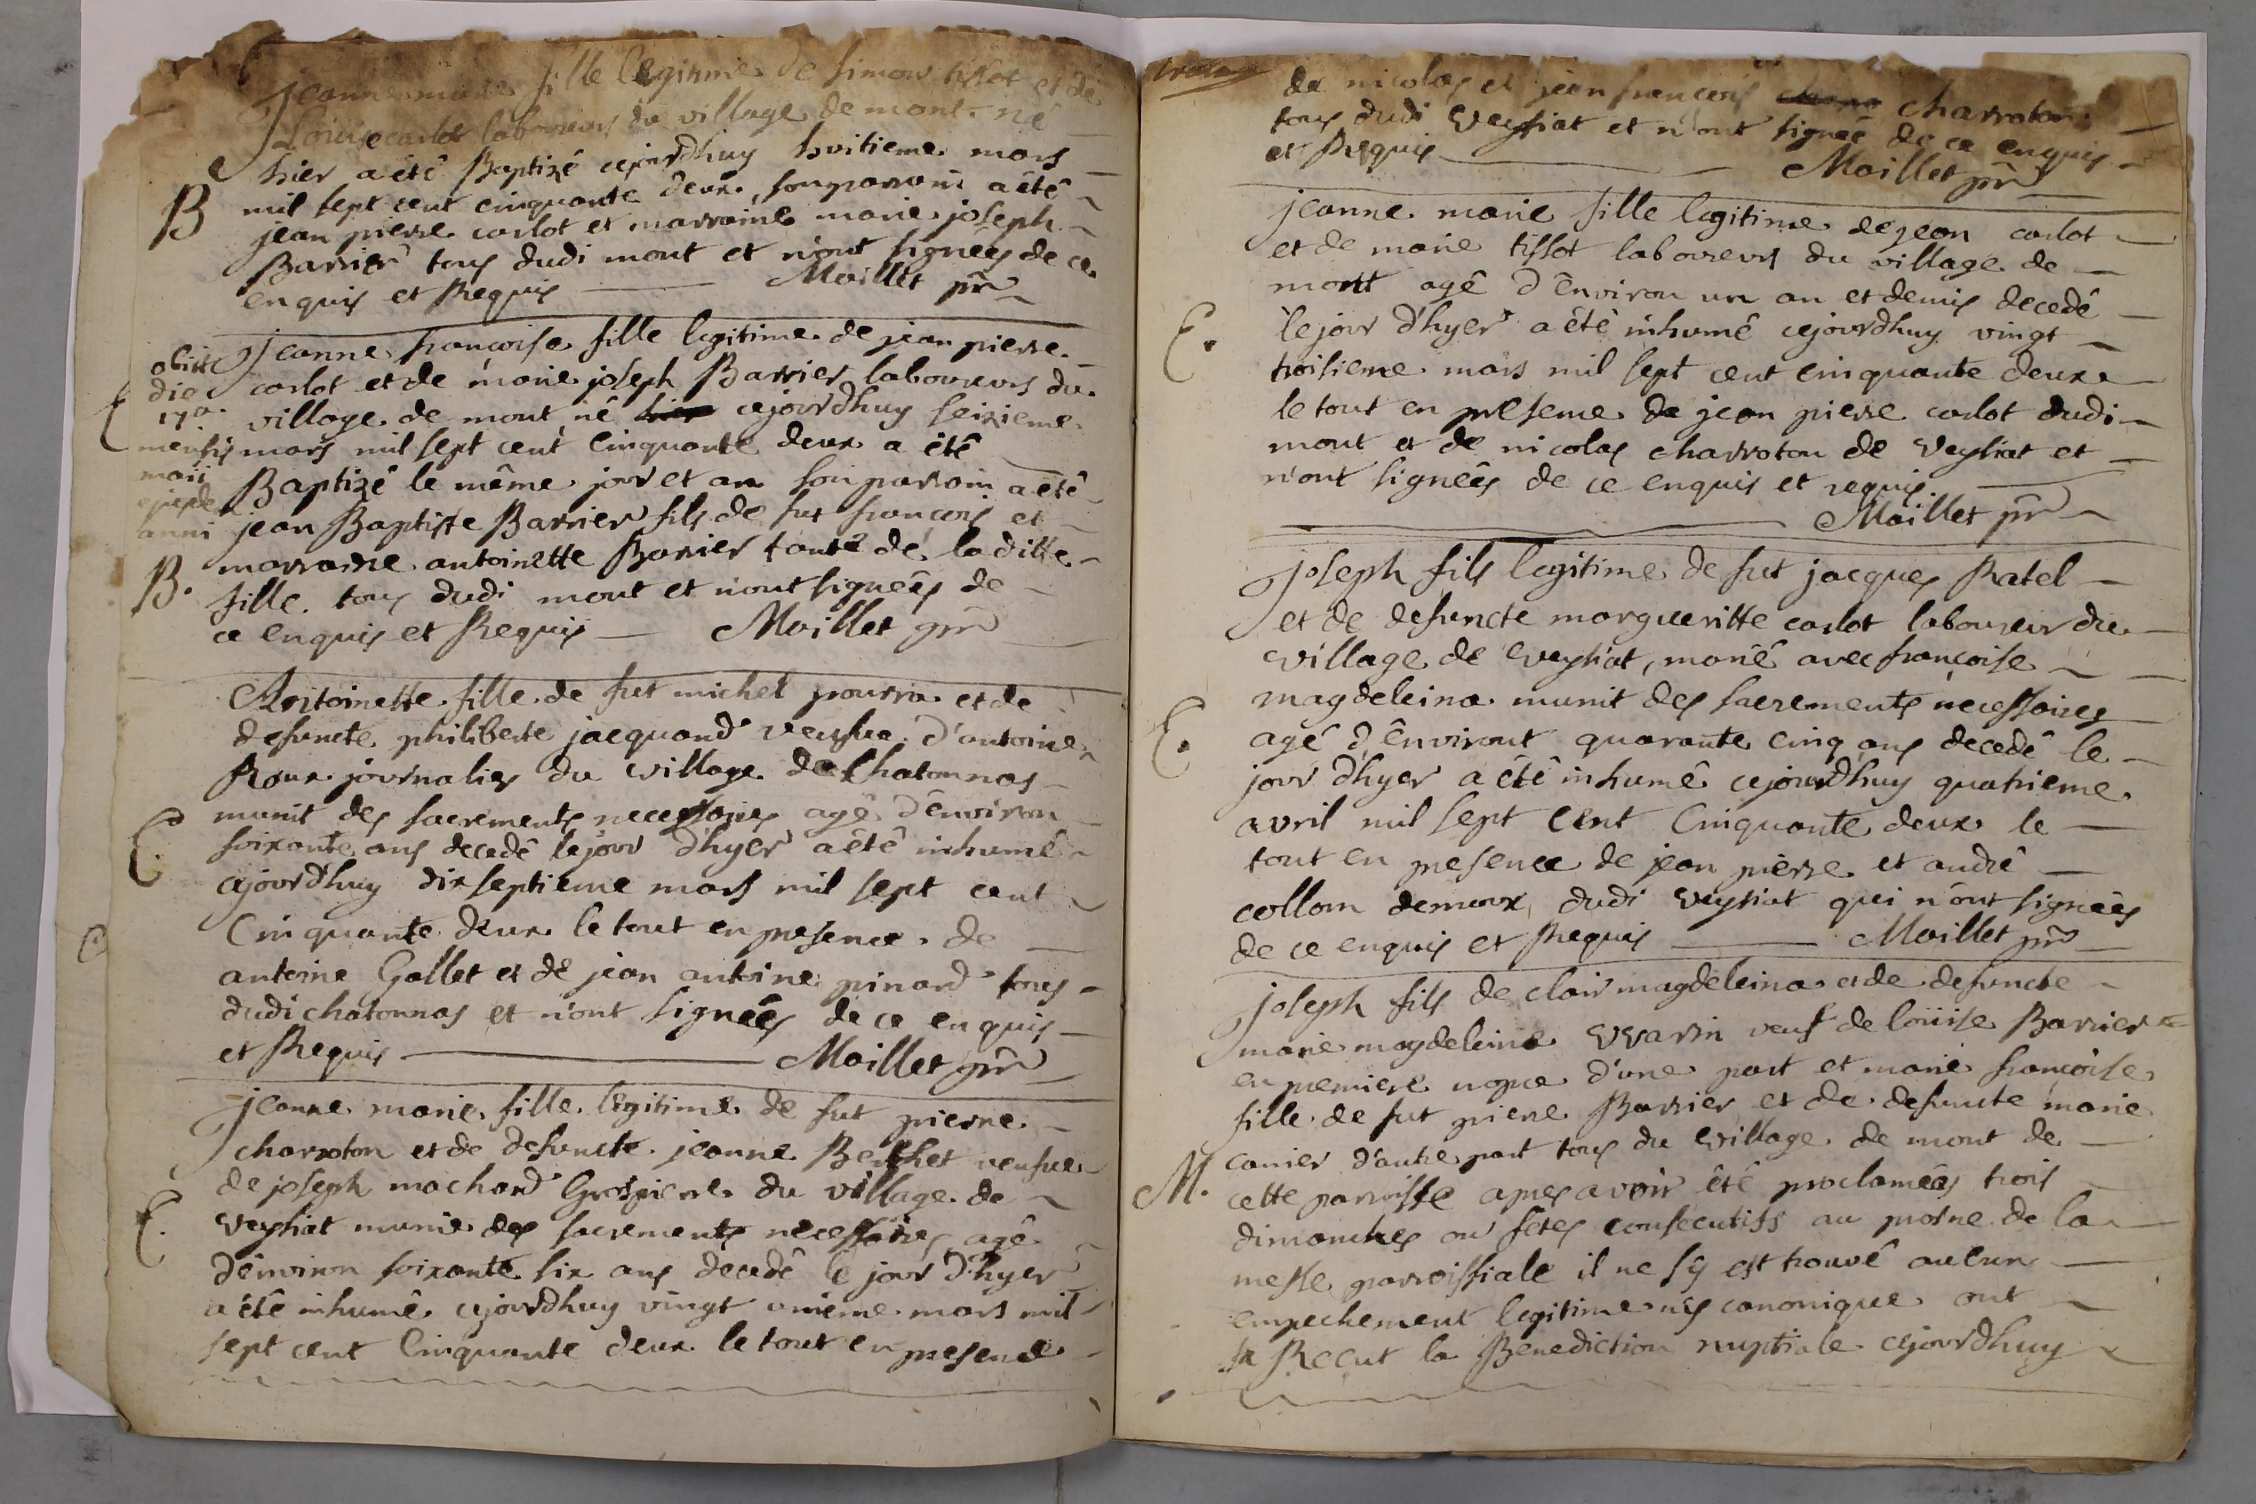 Jeanne marie fille legitime de simon tissot et de
Loüise carlot laboureurs du village de mont né
hier a été Baptizé cejourdhuy huitieme mars
B mil sept cent cinquante deux, son parrain a été
jean pierre carlot et marraine marie joseph
Barrier tous dudi mont et n'ont signeés de ce
enquis et Requis Maillet prr
Jeanne francoise fille legitime de jean pierre
carlot et de marie joseph Barrier laboureurs du
village de mont né hier cejourdhuy seizieme
mars mil sept cent cinquante deux a été
Baptizé le même jour et an son parrain a été
jean Baptiste Barrier fils de fut françois et
marraine antoinette Barrier tante de la ditte
fille tous dudi mont et n'ont signeés de
ce enquis et Requis Maillet prr
obiit
die
17a
mensis
maii
ejusde
anni
E
B.
Antoinette fille de fut michel pourra et de
defuncte philiberte jacquand veufve d'antoine
Roux journalier du village de Chatonnas
munit des sacrements necessaires agé d'environ
E soixante ans decedé le jour d'hyer a été inhumé
cejourdhuy dixseptieme mars mil sept cent
Cinquante deux le tout en presence de
antoine Gallet et de jean antoine pinard tous
dudi chatonnas et n'ont signeés de ce enquis
et Requis Maillet prr
Jeanne marie fille legitime de fut pierre
charroton et de defuncte jeanne Berthet veufve
de joseph machard Grospierre du village de
E. veysiat munie des sacrements necessaires agé
d'environ soixante six ans decedé le jour d'hyer
a été inhumé cejourdhuy vingt unieme mars mil
sept cent Cinquante deux le tout en presence
de nicolas et jean francois charroton
tous dudi veysiat et n'ont signeé de ce enquis
et Requis Maillet prr
jeanne marie fille legitime de jean carlot
et de marie tissot laboureurs du village de
mont agé d'environ un an et demis decedé
E. le jour d'hyer a été inhumé cejourdhuy vingt
troisieme mars mil sept cent cinquante deux
le tout en presence de jean pierre carlot dudi
mont et de nicolas charroton de veysiat et
n'ont signeés de ce enquis et requis
Maillet prr
Joseph fils legitime de fut jacques Ratel
et de defuncte margueritte carlot laboureur du
village de veysiat, marié avec françoise
magdeleina munit des sacrements necessaires
E. agé d'environt quarante cinq ans decedé le
jour d'hyer a été inhumé cejourdhuy quatrieme
avril mil sept cent Cinquante deux le
tout en presence de jean pierre et andré
collom demoux dudi veysiat qui n'ont signeés
de ce enquis et Requis Maillet prr
Joseph fils de clair magdeleina et de defuncte
marie magdeleine vvarin veuf de loüise Barrier
en premiere nopce d'une part et marie françoise
fille de fut pierre Barrier et de defuncte marie
carrier d'autre part tous du village de mont de
M. cette parroisse apres avoir été proclameés trois
dimanches ou fetes consecutifs au prosne de la
messe parroissiale il ne s'y est trouvé aucun
empechement legitime ny canonique ont
Recut la Benediction nuptiale cejourdhuy